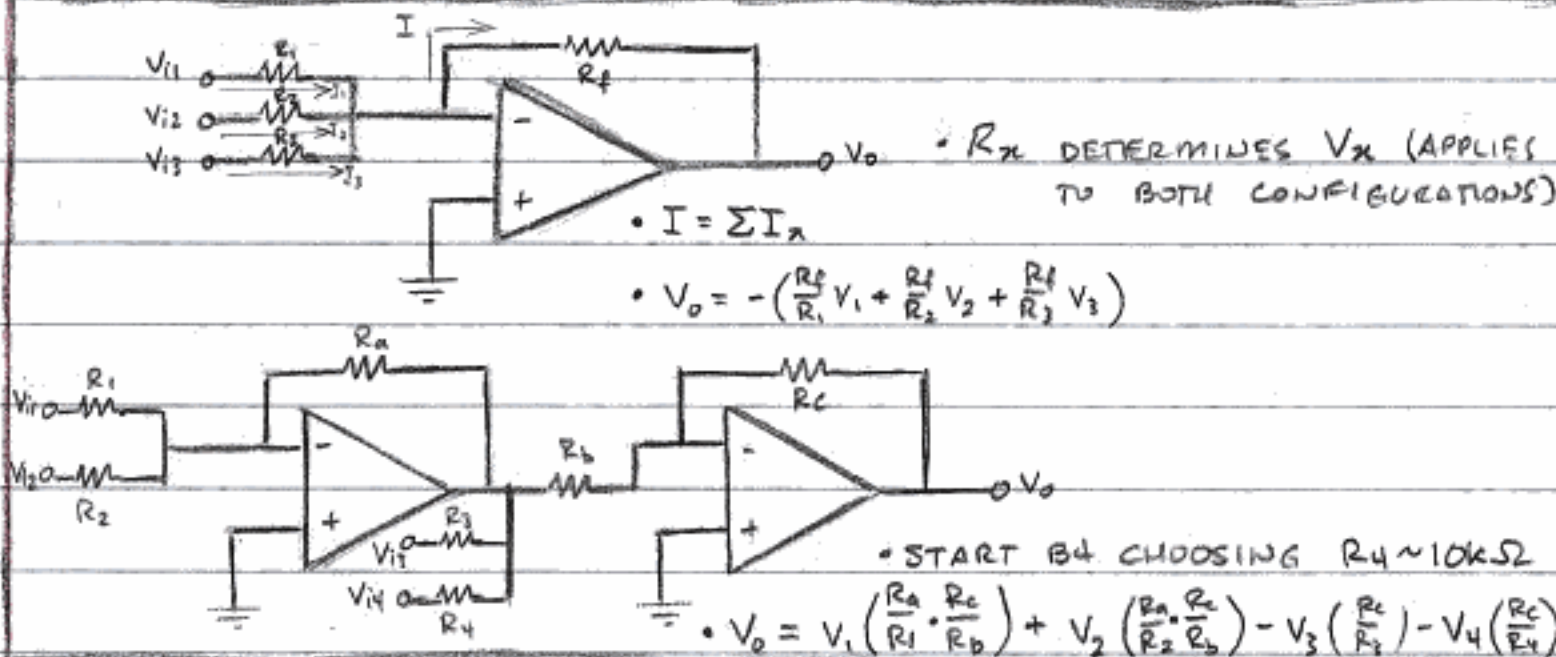 I
R1
Rf
Vi1
I1
R2
Vi2
I2
R3
Vi3
I3
-
+
Vo
• Rx DETERMINES Vx (APPLIES
TO BOTH CONFIGURATIONS)
• I = ΣIx
• Vo = -(Rf/R1 V1 + Rf/R2 V2 + Rf/R3 V3)
Ra
R1
Vi1
Vi2
R2
-
+
Rb
R3
Vi3
Vi4
R4
Rc
-
+
Vo
• START BY CHOOSING R4 ~ 10kΩ
• Vo = V1 (Ra/R1 · Rc/Rb) + V2 (Ra/R2 · Rc/Rb) - V3 (Rc/R3) - V4 (Rc/R4)